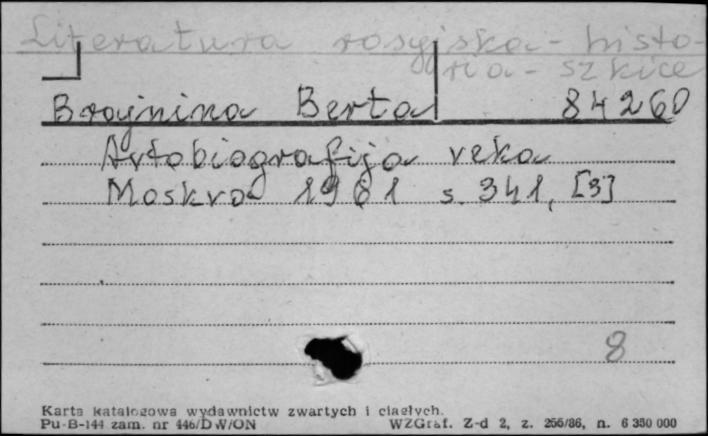 Literatura rosyjska - histo-
ria - szkice
Brajnina Berta 84260
Avtobiografija veka
Moskva 1981 s. 341, [3]
8
Karta katalogowa wydawnictw zwartych i ciągłych.
Pu-B-144 zam. nr 446/DW/ON WZGraf. Z-d 2, z. 255/86, n. 6 350 000